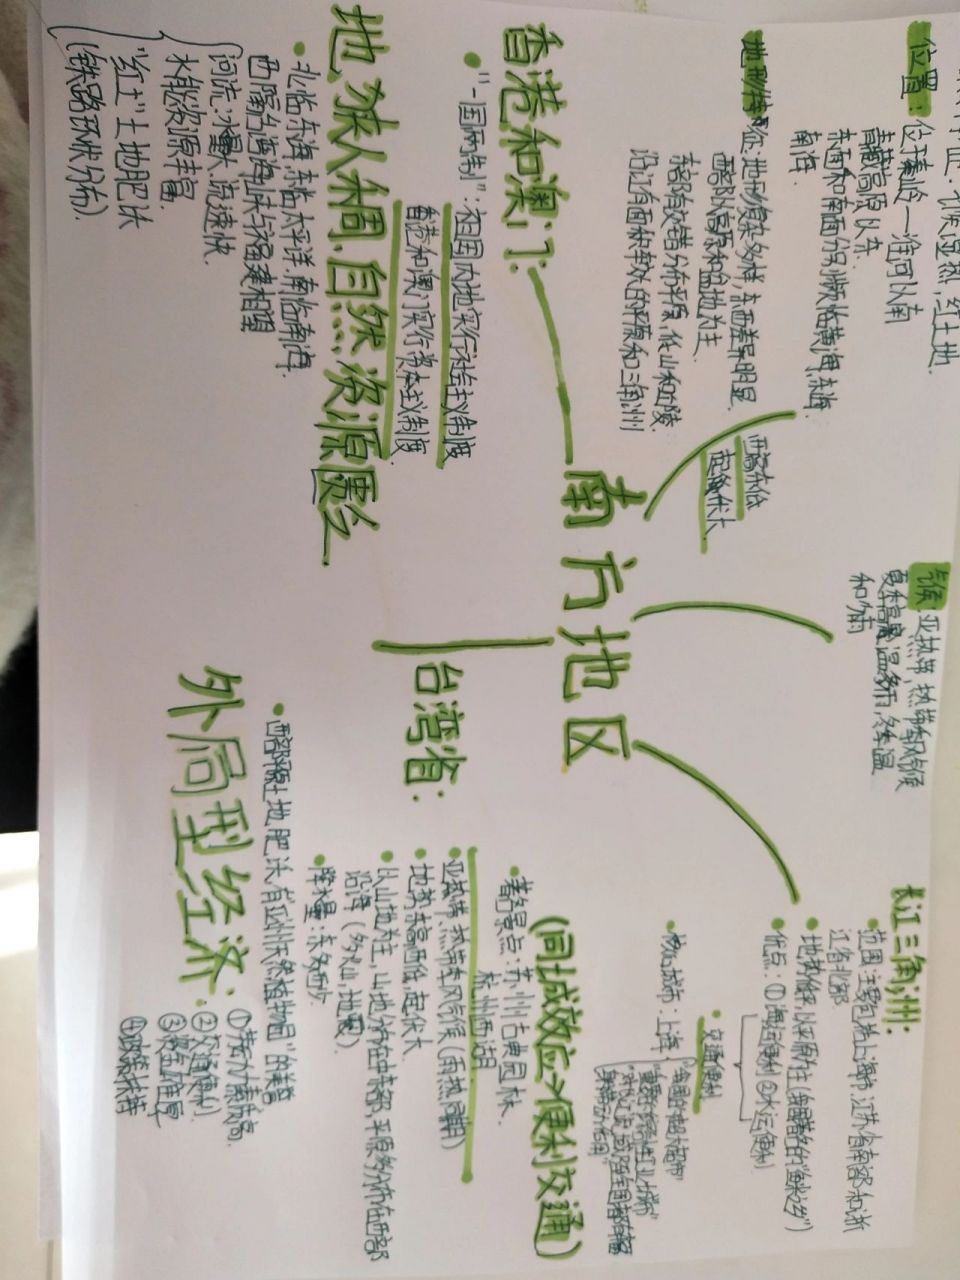 南方地区
位置:位于秦岭—淮河以南
青藏高原以东.
东面和南面分别濒临黄海,东海,
南海.
地形特征:地形复杂多样,东西差异明显.
西部以高原和盆地为主.
东部交错分布平原,低山和丘陵.
沿江有面积较大的平原和三角洲
西高东低
起伏大
气候:亚热带,热带季风气候
夏季高温多雨,冬季温
和少雨
长江三角洲:
范围:主要包括上海市,江苏省南部和浙
江省北部
地势低平,以平原为主(我国著名的"鱼米之乡")
优点:①海运便利 ②水运便利.
交通便利
核心城市:上海:
"我国的超大城市"
(同城效应→便利交通)
著名景点:苏州古典园林.
杭州西湖
香港和澳门:
"一国两制":祖国内地实行社会主义制度
香港和澳门实行资本主义制度
地狭人稠,自然资源匮乏
台湾省:
亚热带,热带季风气候(雨热同期)
地势东高西低,起伏大
以山地为主,山地分布在中东部,平原多分布在西部
沿海(多火山,地震).
降水量:东多西少
北临东海,东临太平洋,南临南海.
西隔台湾海峡与福建相望
河流:水量大,流速快.
水能资源丰富.
"红土"土地肥沃
(铁路环状分布).
西部平原土地肥沃,有"亚洲天然植物园"的美誉
外局型经济:
①劳动力素质高.
②交通便利
④政策扶持